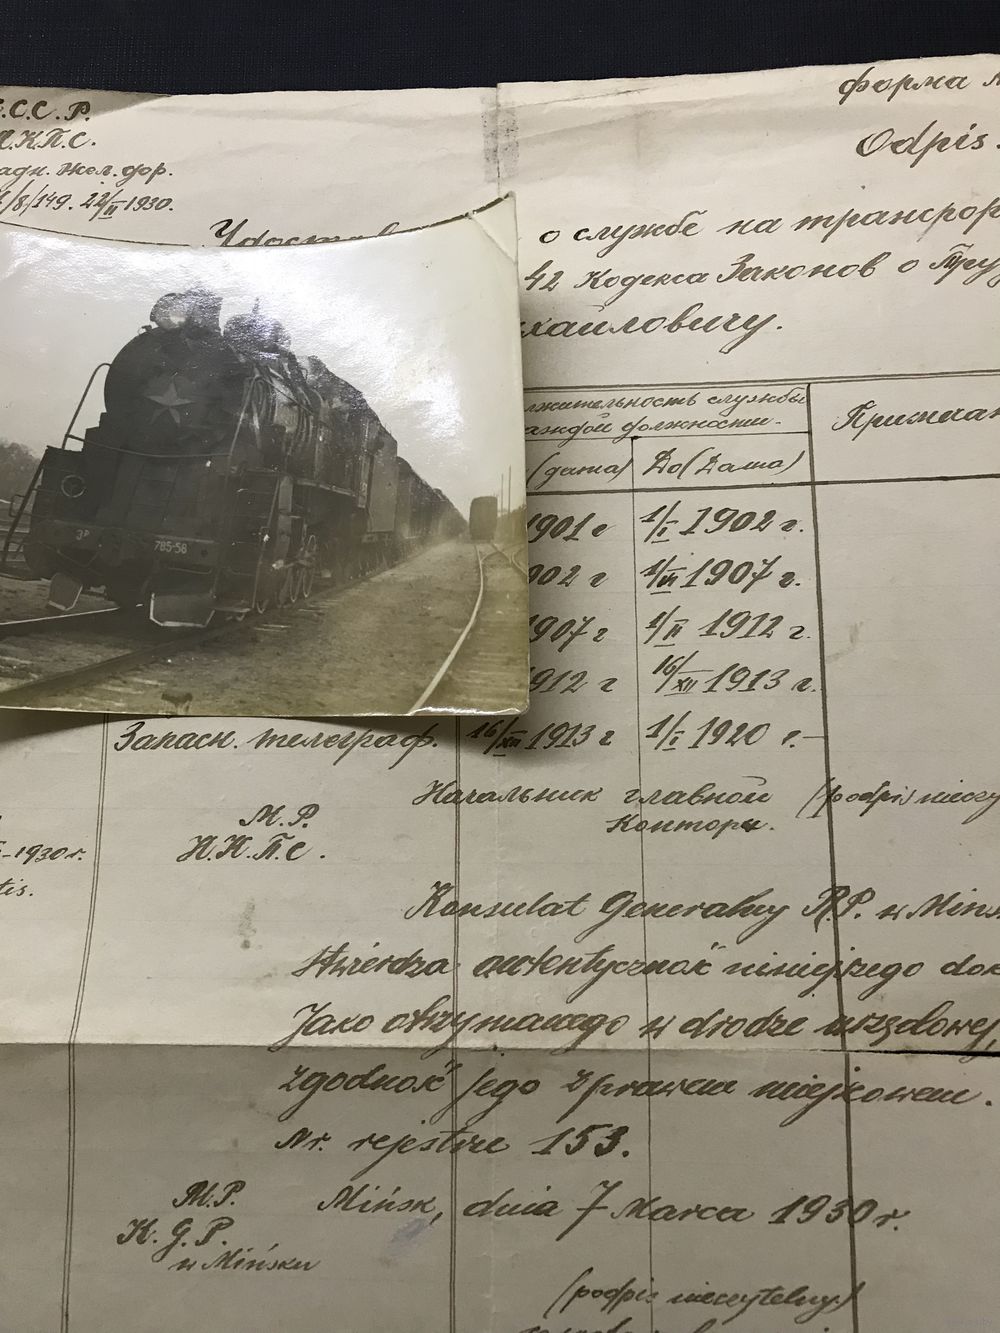 С.С.Р.
Н.К.П.С.
жел. дор.
/8/149. 22/II 1930.
форма
Odpis.
о службе на транспор
42 Кодекса Законов о Тру
хайловичу.
жительность службы
аждой должности.
Примечан
(дата) До (Дата)
1901 г 1/I 1902 г.
902 г 1907 г.
907 г 1/II 1912 г.
912 г 16/XII 1913 г.
Запасн. телеграф. 16/XII 1913 г 1/I 1920 г.
Начальник главной (podpis nieczy
Конторы.
М.Р.
Н.К.П.С.
1930 г.
tis.
Konsulat Generalny R.P. w Mińs
stwierdza autentyczność niniejszego dok
jako otrzymanego w drodze urzędowej,
zgodność jego z prawem miejscowem.
Nr. rejestru 153.
M.P. Mińsk, dnia 7 Marca 1930 r.
K.G.P.
w Mińsku
(podpis nieczytelny)
ЭР
785-56